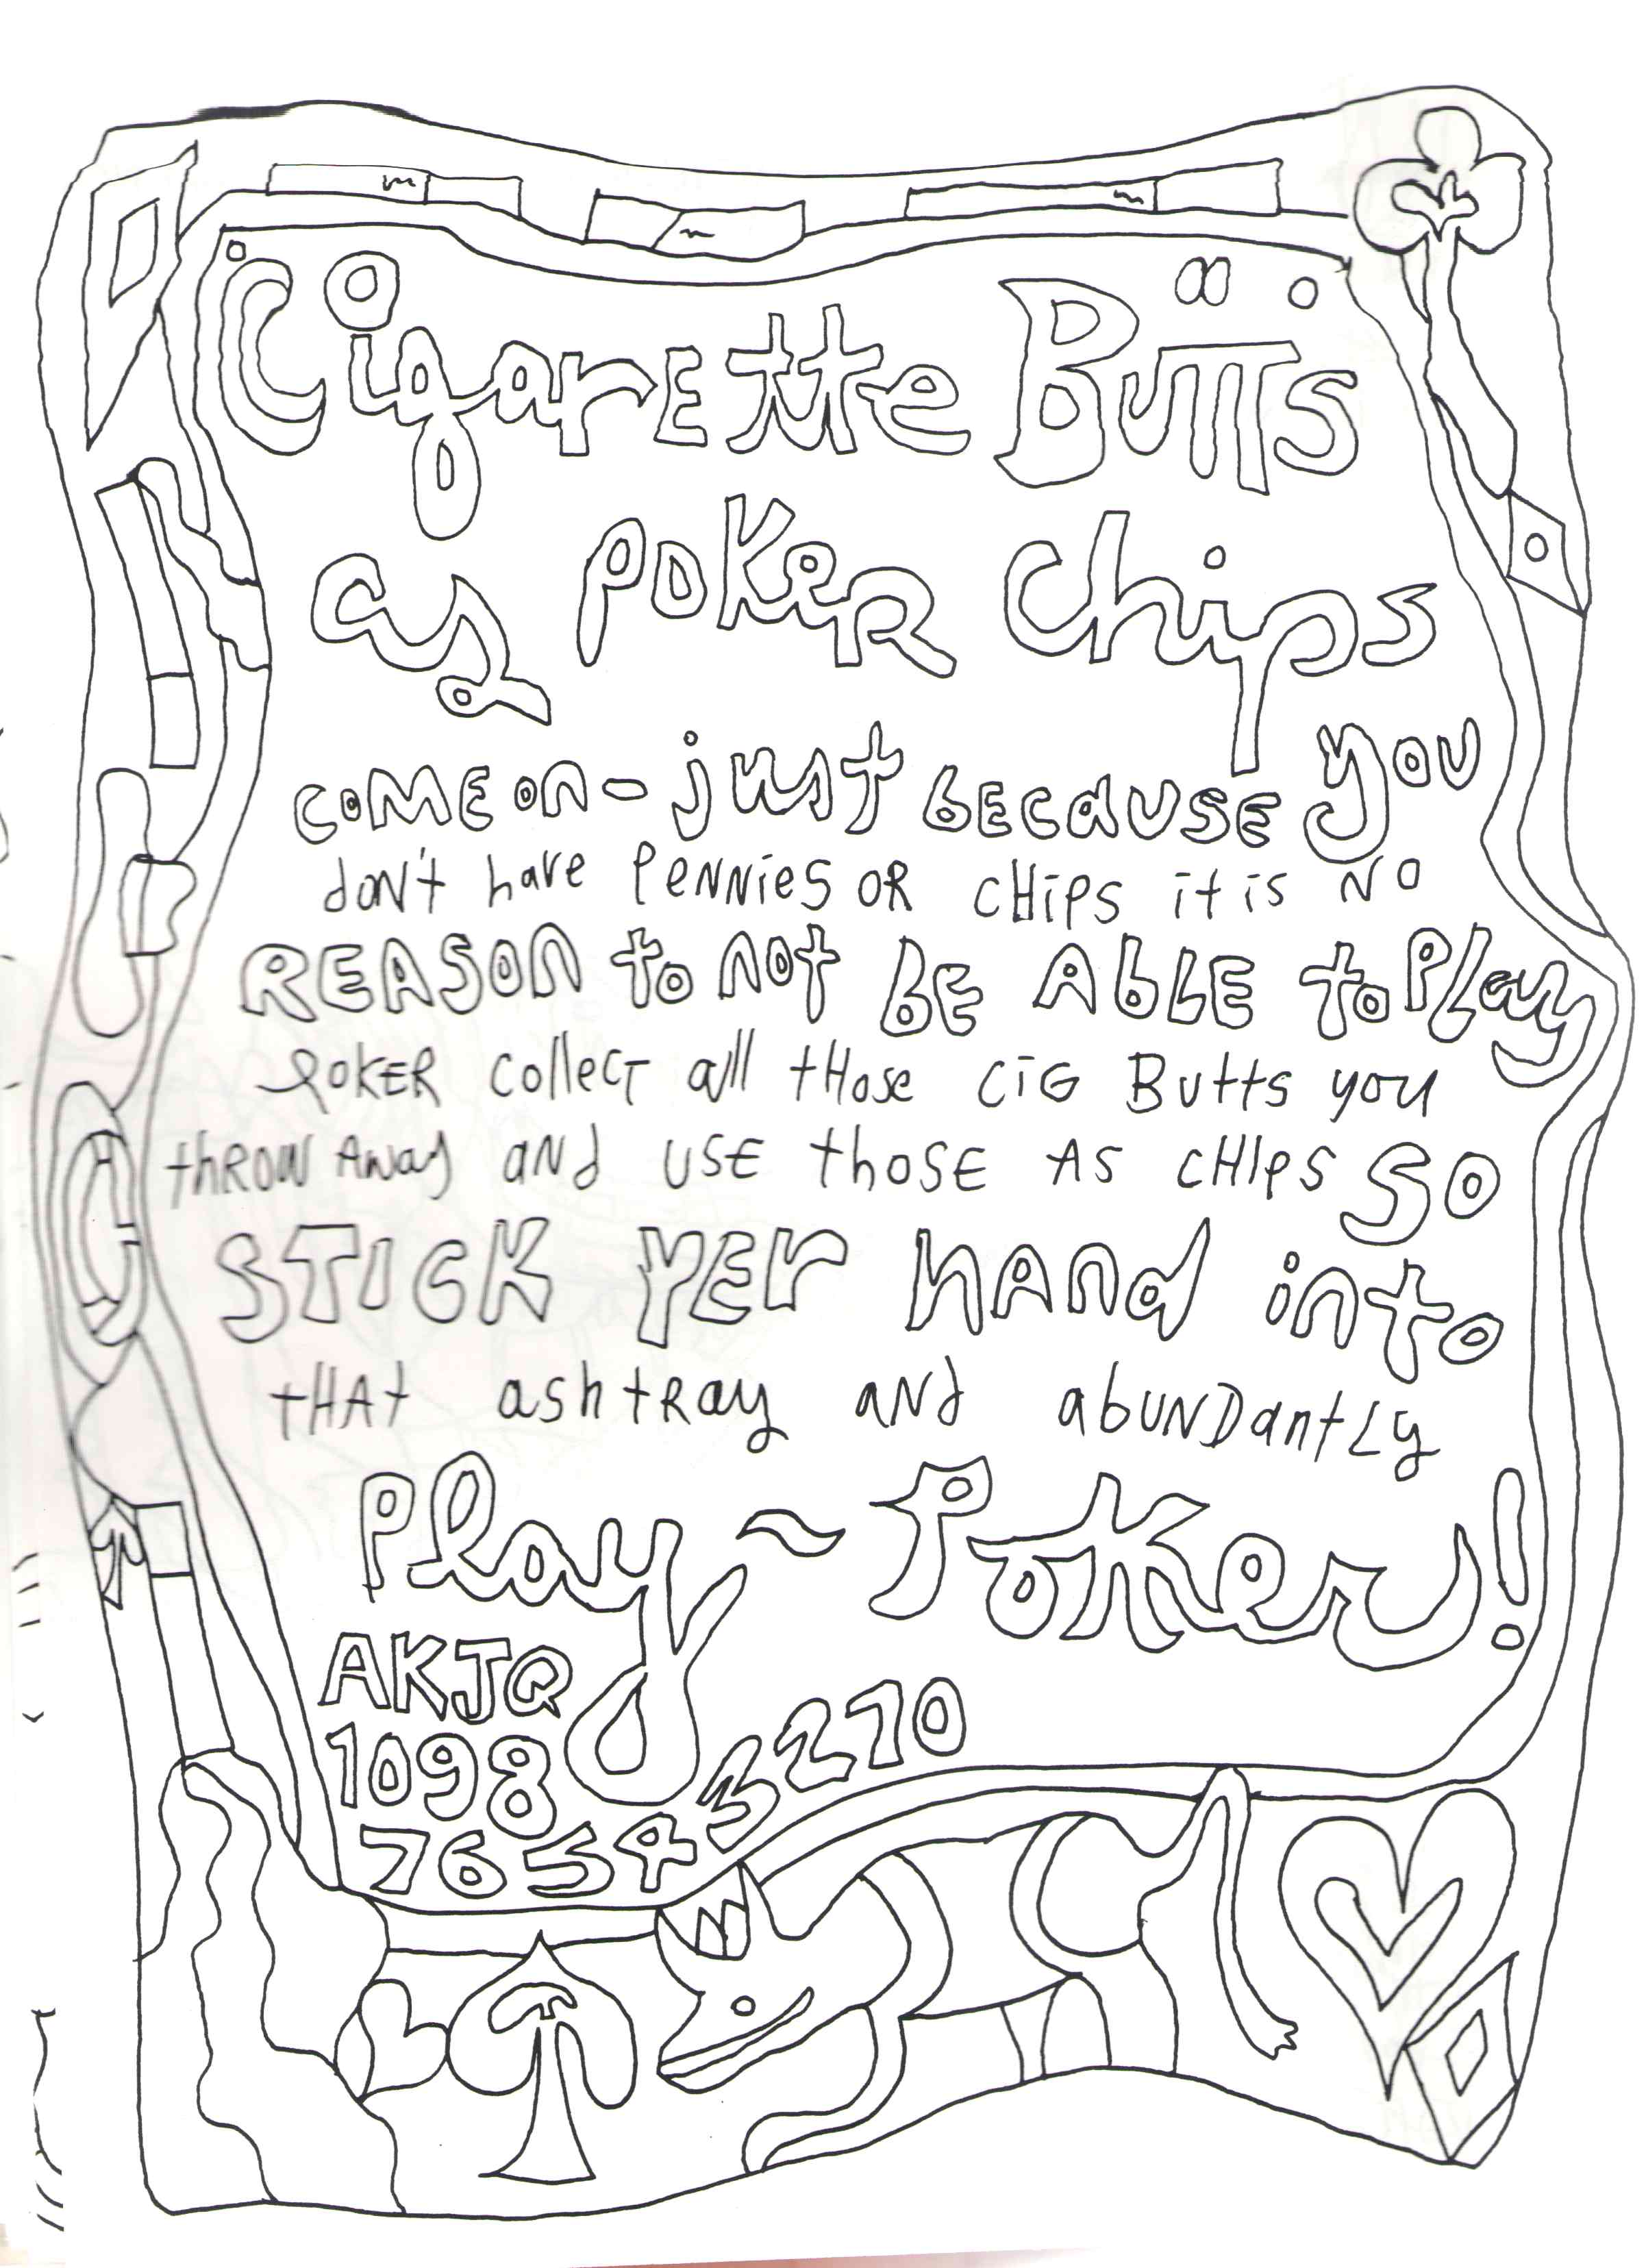 Cigarette Butts
as Poker Chips
come on - just because you
don't have pennies or chips it is no
reason to not be able to play
poker collect all those cig butts you
throw away and use those as chips so
stick yer hand into
that ashtray and abundantly
play ~ Poker!
AKJQ
1098
76543210